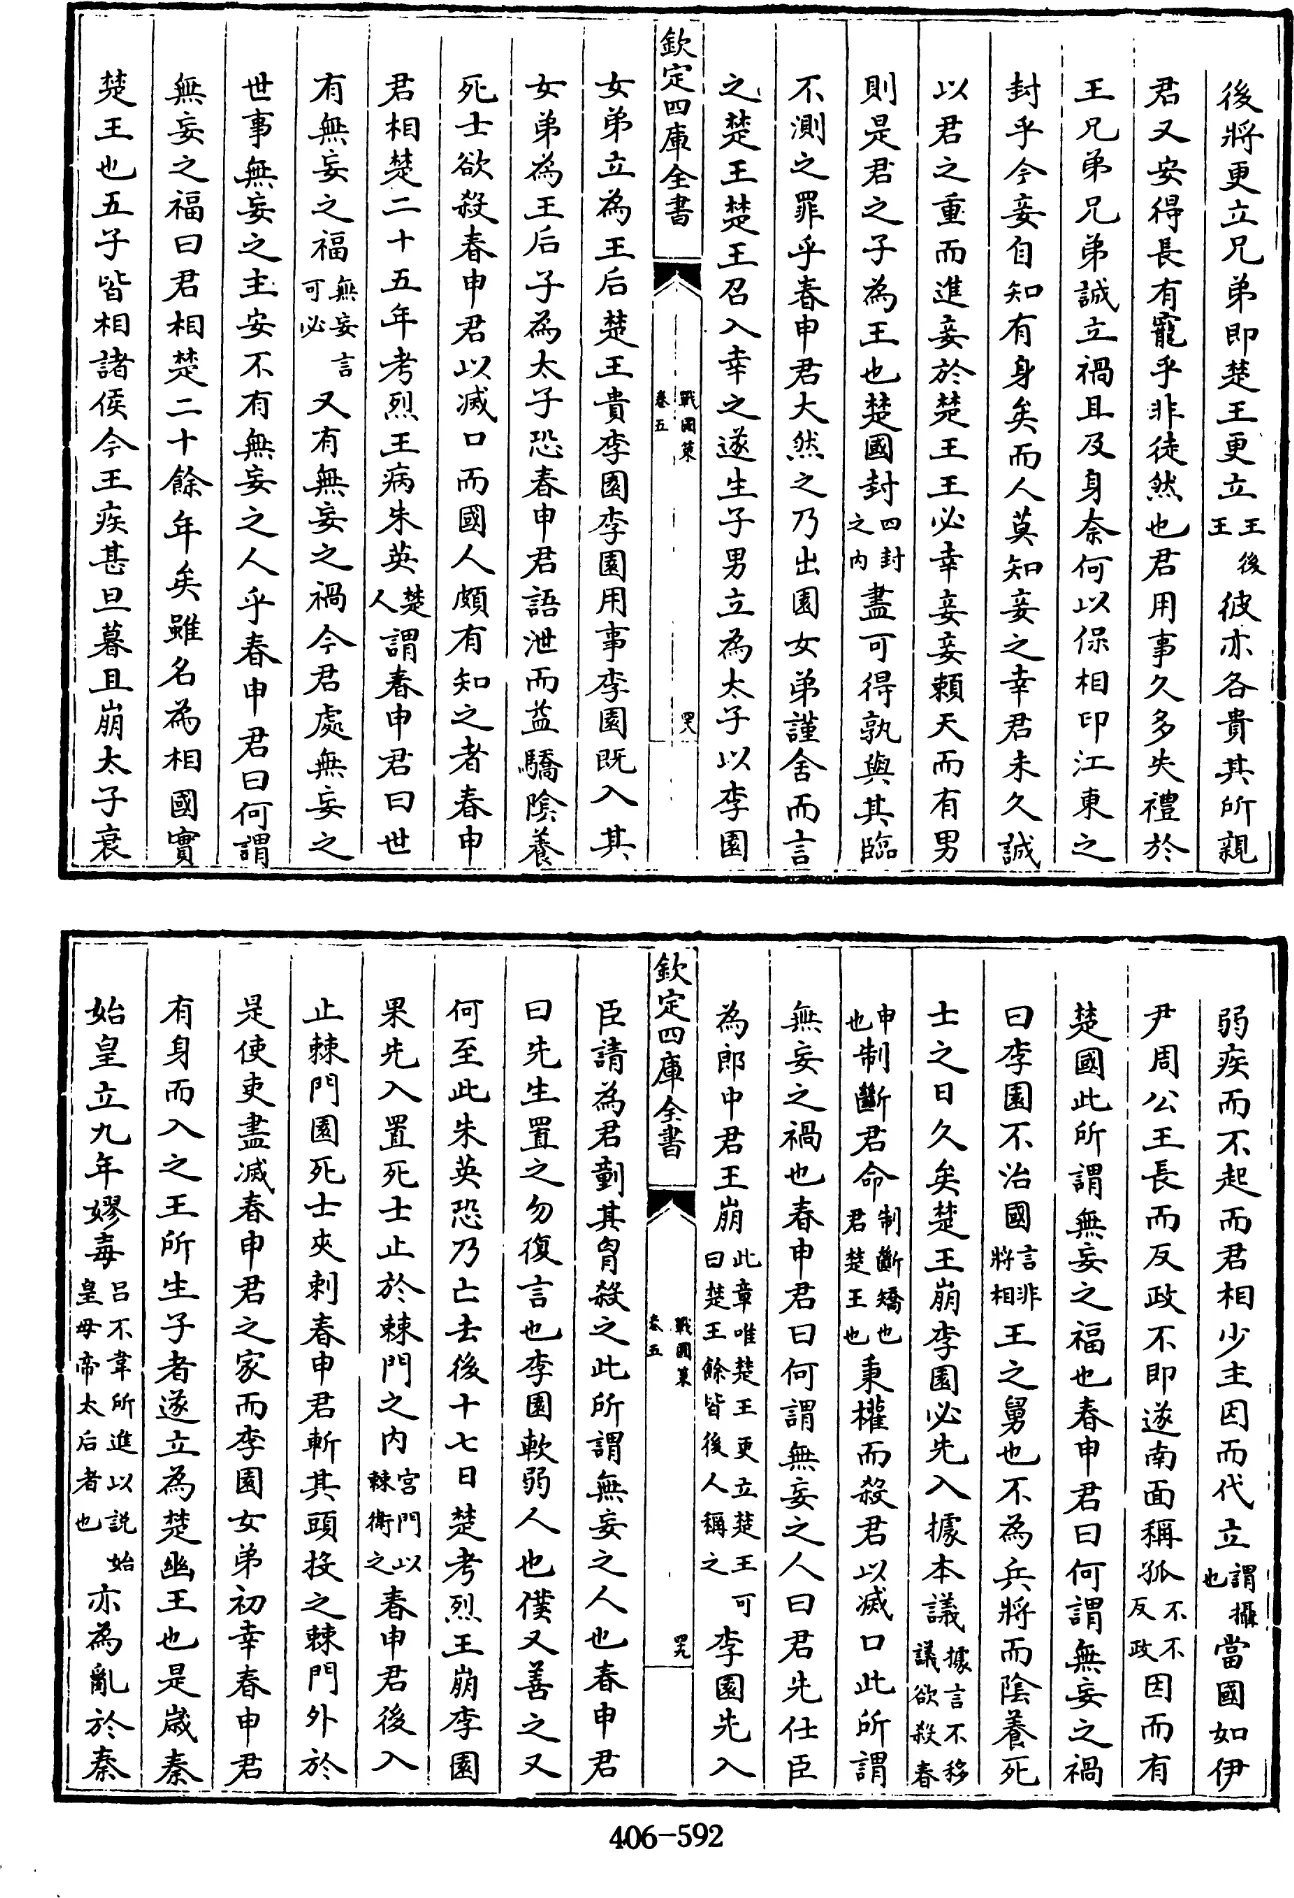 後將更立兄弟即楚王更立王後王彼亦各貴其所親
君又安得長有寵乎非徒然也君用事久多失禮於
王兄弟兄弟誠立禍且及身奈何以保相印江東之
封乎今妾自知有身矣而人莫知妾之幸君未久誠
以君之重而進妾於楚王王必幸妾妾賴天而有男
則是君之子為王也楚國封四封之内盡可得孰與其臨
不測之罪乎春申君大然之乃出園女弟謹舍而言
之楚王楚王召入幸之遂生子男立為太子以李園
欽定四庫全書
戰國策
卷五
四八
女弟立為王后楚王貴李園李園用事李園既入其
女弟為王后子為太子恐春申君語泄而益驕陰養
死士欲殺春申君以滅口而國人頗有知之者春申
君相楚二十五年考烈王病朱英楚人謂春申君曰世
有無妄之福無妄言可必又有無妄之禍今君處無妄之
世事無妄之主安不有無妄之人乎春申君曰何謂
無妄之福曰君相楚二十餘年矣雖名為相國實
楚王也五子皆相諸侯今王疾甚旦暮且崩太子衰
弱疾而不起而君相少主因而代立謂攝也當國如伊
尹周公王長而反政不即遂南面稱孤不不反政因而有
楚國此所謂無妄之福也春申君曰何謂無妄之禍
曰李園不治國言非將相王之舅也不為兵將而陰養死
士之日久矣楚王崩李園必先入據本議據言不移議欲殺春
申也制斷君命制斷矯也君楚王也秉權而殺君以滅口此所謂
無妄之禍也春申君曰何謂無妄之人曰君先仕臣
為郎中君王崩此章唯楚王更立楚王可曰楚王餘皆後人稱之李園先入
欽定四庫全書
戰國策
卷五
四九
臣請為君劃其胷殺之此所謂無妄之人也春申君
曰先生置之勿復言也李園軟弱人也僕又善之又
何至此朱英恐乃亡去後十七日楚考烈王崩李園
果先入置死士止於棘門之内宮門以棘衛之春申君後入
止棘門園死士夾刺春申君斬其頭投之棘門外於
是使吏盡滅春申君之家而李園女弟初幸春申君
有身而入之王所生子者遂立為楚幽王也是歲秦
始皇立九年嫪毐呂不韋所進以説始皇母帝太后者也亦為亂於秦
406-592